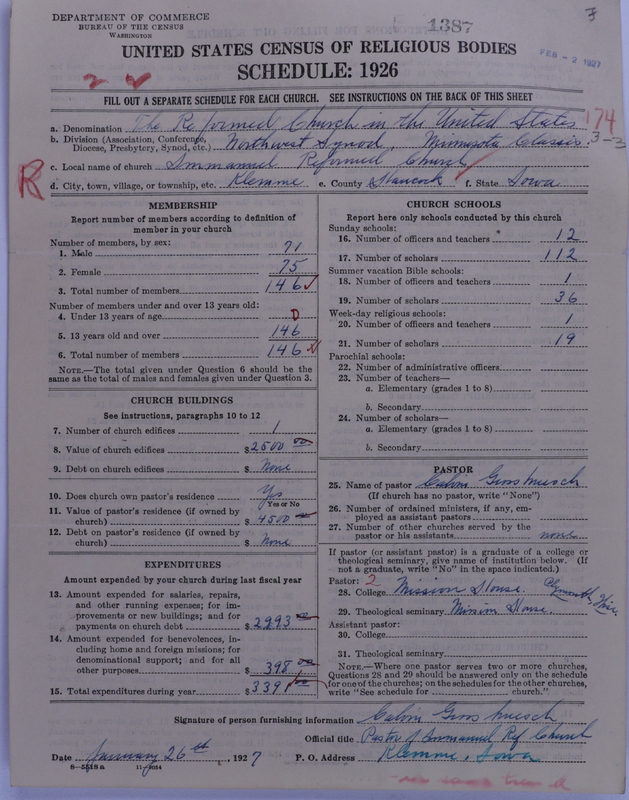 DEPARTMENT OF COMMERCE
BUREAU OF THE CENSUS
WASHINGTON
1387
FEB - 2 1927
UNITED STATES CENSUS OF RELIGIOUS BODIES
SCHEDULE: 1926
FILL OUT A SEPARATE SCHEDULE FOR EACH CHURCH. SEE INSTRUCTIONS ON THE BACK OF THIS SHEET
174
3-3
a. Denomination The Reformed Church in the United States
b. Division (Association, Conference, Diocese, Presbytery, Synod, etc.) Northwest Synod, Minnesota Classis.
c. Local name of church Immanuel Reformed Church
R
d. City, town, village, or township, etc. Klemme e. County Hancock f. State Iowa
MEMBERSHIP
Report number of members according to definition of
member in your church
Number of members, by sex:
1. Male 71
2. Female 75
3. Total number of members 146
Number of members under and over 13 years old:
4. Under 13 years of age 0
5. 13 years old and over 146
6. Total number of members 146
NOTE.—The total given under Question 6 should be the
same as the total of males and females given under Question 3.
CHURCH BUILDINGS
See instructions, paragraphs 10 to 12
7. Number of church edifices 1
8. Value of church edifices $ 2500 00
9. Debt on church edifices $ None
10. Does church own pastor's residence Yes
Yes or No
11. Value of pastor's residence (if owned by
church) $ 4500 00
12. Debt on pastor's residence (if owned by
church) $ None
EXPENDITURES
Amount expended by your church during last fiscal year
13. Amount expended for salaries, repairs,
and other running expenses; for im-
provements or new buildings; and for
payments on church debt $ 2993
14. Amount expended for benevolences, in-
cluding home and foreign missions; for
denominational support; and for all
other purposes $ 398 00
15. Total expenditures during year $ 3391 00
CHURCH SCHOOLS
Report here only schools conducted by this church
Sunday schools:
16. Number of officers and teachers 12
17. Number of scholars 112
Summer vacation Bible schools:
18. Number of officers and teachers 1
19. Number of scholars 36
Week-day religious schools:
20. Number of officers and teachers 1
21. Number of scholars 19
Parochial schools:
22. Number of administrative officers
23. Number of teachers—
a. Elementary (grades 1 to 8)
b. Secondary
24. Number of scholars—
a. Elementary (grades 1 to 8)
b. Secondary
PASTOR
25. Name of pastor Calvin Grosshuesch
(If church has no pastor, write "None")
26. Number of ordained ministers, if any, em-
ployed as assistant pastors
27. Number of other churches served by the
pastor or his assistants none
If pastor (or assistant pastor) is a graduate of a college or
theological seminary, give name of institution below. (If
not a graduate, write "No" in the space indicated.)
Pastor: 2
28. College Mission House. Plymouth, Wis.
29. Theological seminary Mission House.
Assistant pastor:
30. College
31. Theological seminary
NOTE.—Where one pastor serves two or more churches,
Questions 28 and 29 should be answered only on the schedule
for one of the churches; on the schedules for the other churches,
write "See schedule for church."
Signature of person furnishing information Calvin Grosshuesch
Official title Pastor of Immanuel Ref. Church
Date January 26th, 1927 P. O. Address Klemme, Iowa
8-5518a 11-9054